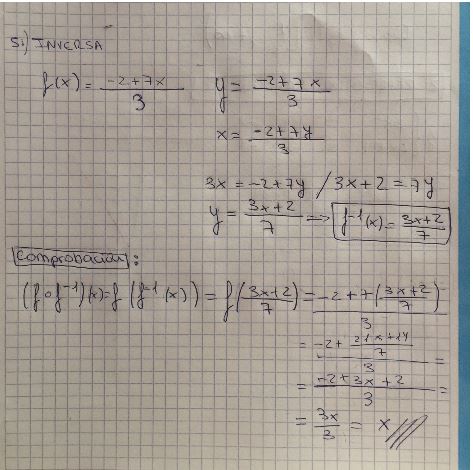 5.) INVERSA
f(x) = (-2+7x)/3    y = (-2+7x)/3
x = (-2+7y)/3
3x = -2+7y / 3x+2 = 7y
y = (3x+2)/7 => f⁻¹(x) = (3x+2)/7
Comprobación:
(f∘f⁻¹)(x) = f(f⁻¹(x)) = f((3x+2)/7) = (-2+7((3x+2)/7))/3
= (-2+(21x+14)/7)/3 =
= (-2+3x+2)/3 =
= 3x/3 = x